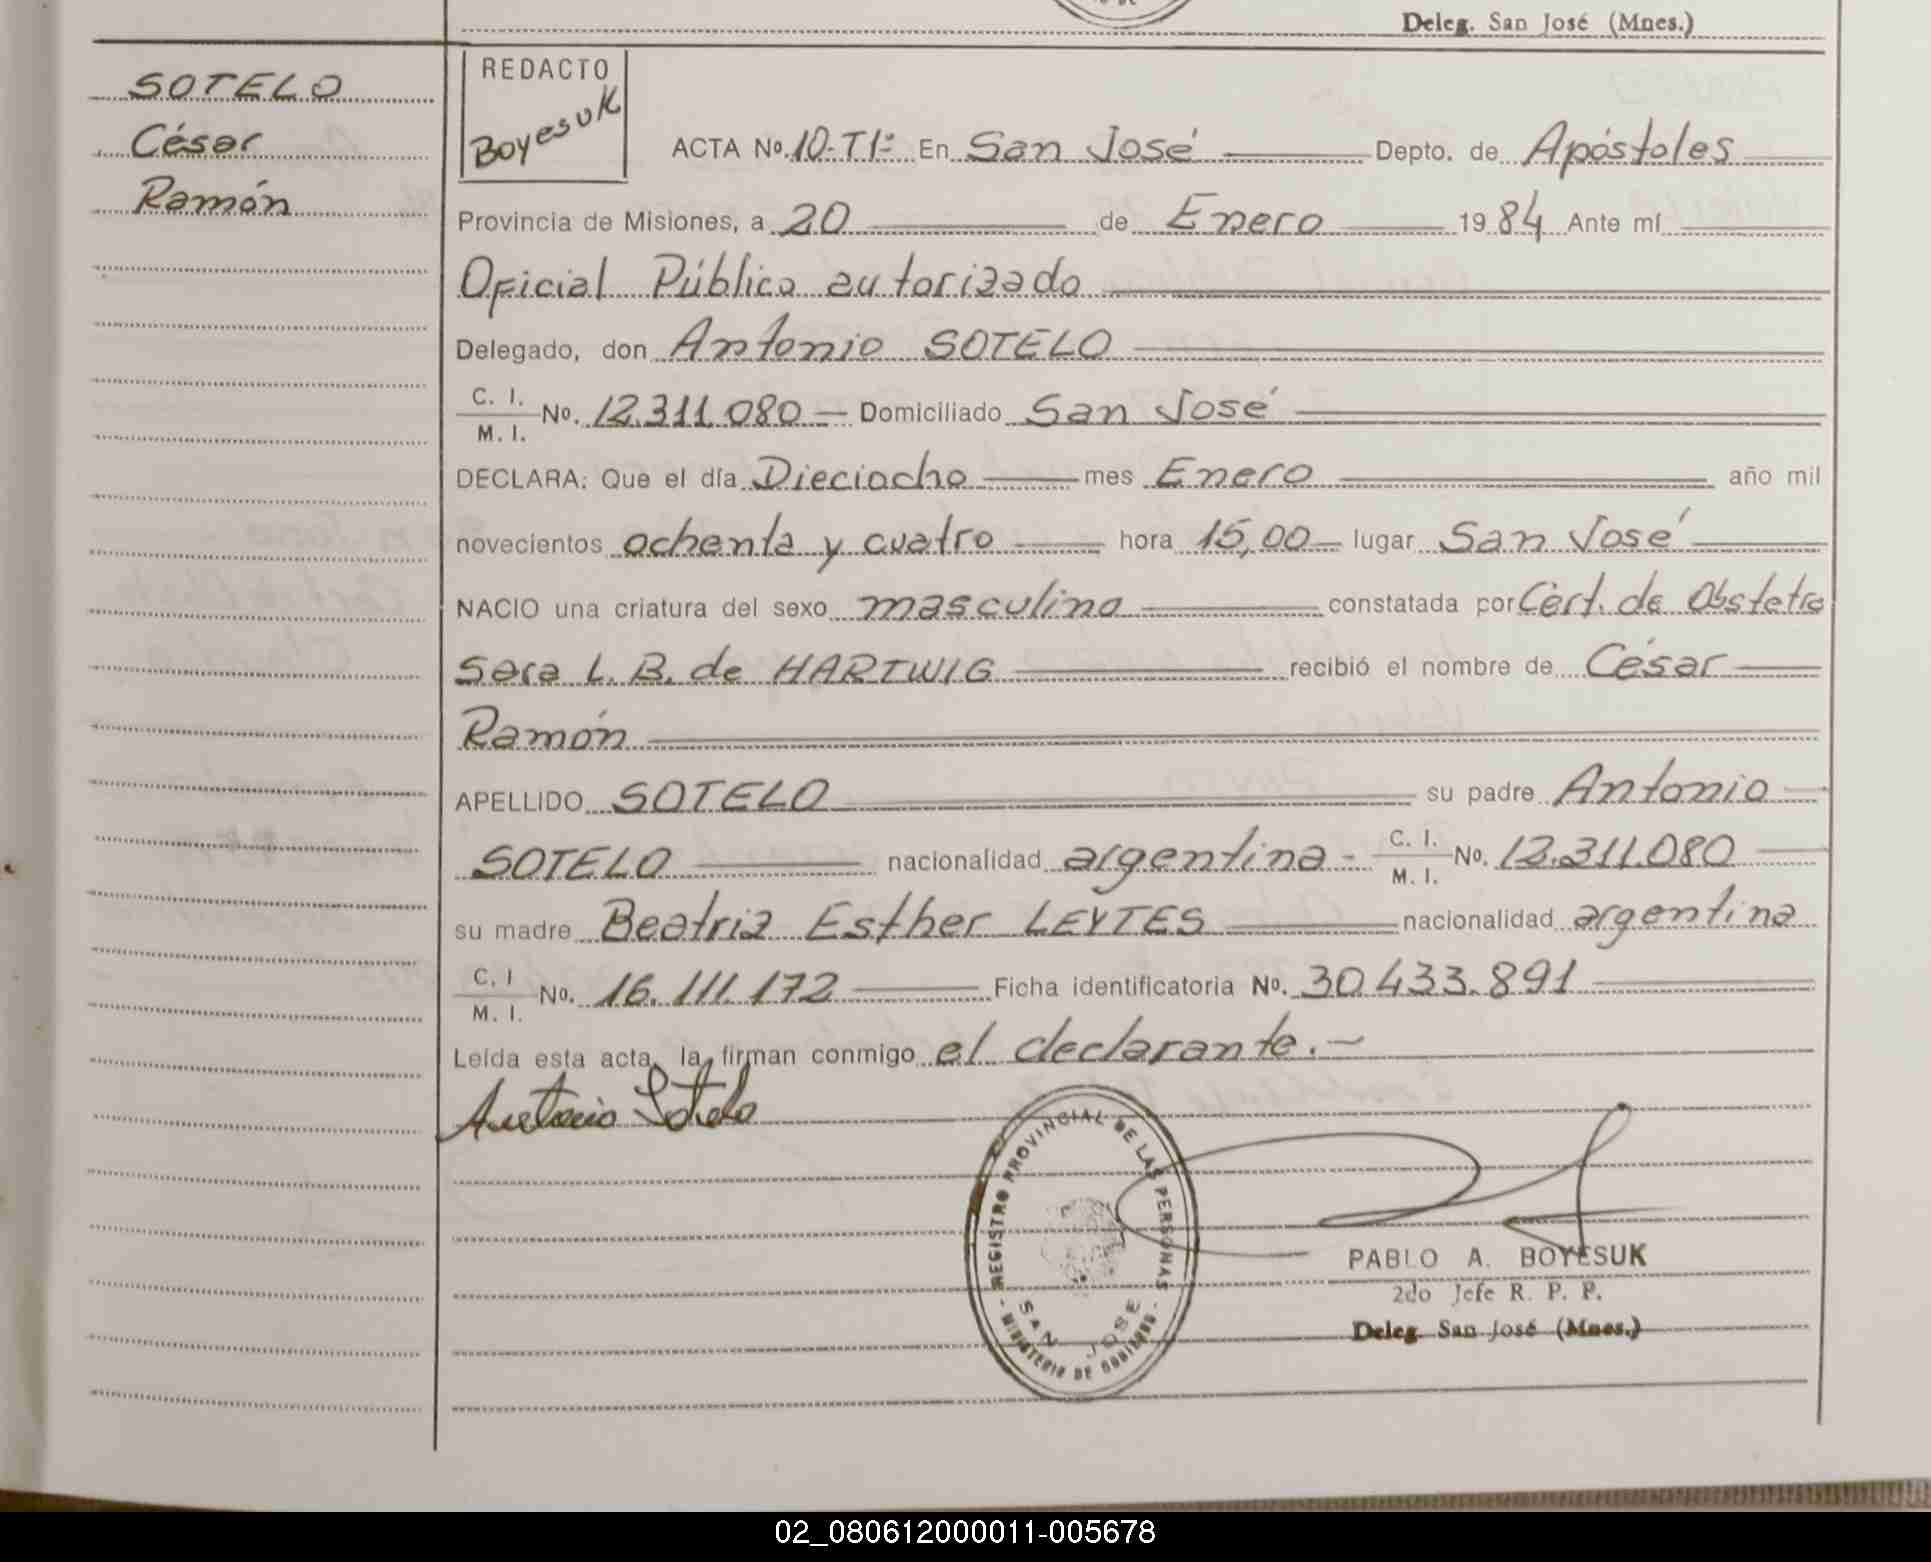 Deleg. San José (Mnes.)
SOTELO
César
Ramón
REDACTO
Boyesuk
ACTA No. 10-T1º En San José Depto. de Apóstoles
Provincia de Misiones, a 20 de Enero 1984 Ante mí
Oficial Público autorizado
Delegado, don Antonio SOTELO
C. I.
M. I. No. 12.311.080 Domiciliado San José
DECLARA: Que el día Dieciocho mes Enero año mil
novecientos ochenta y cuatro hora 15,00 lugar San José
NACIO una criatura del sexo masculino constatada por Cert. de Obstetra
Sara L. B. de HARTWIG recibió el nombre de César
Ramón
APELLIDO SOTELO su padre Antonio
SOTELO nacionalidad argentina C. I. M. I. No. 12.311.080
su madre Beatriz Esther LEYTES nacionalidad argentina
C. I M. I. No. 16.111.172 Ficha identificatoria No. 30.433.891
Leída esta acta, la firman conmigo el declarante.-
Antonio Sotelo
REGISTRO PROVINCIAL DE LAS PERSONAS
SAN JOSE
- MINISTERIO DE GOBIERNO -
PABLO A. BOYESUK
2do Jefe R. P. P.
Deleg San José (Mnes.)
02_080612000011-005678